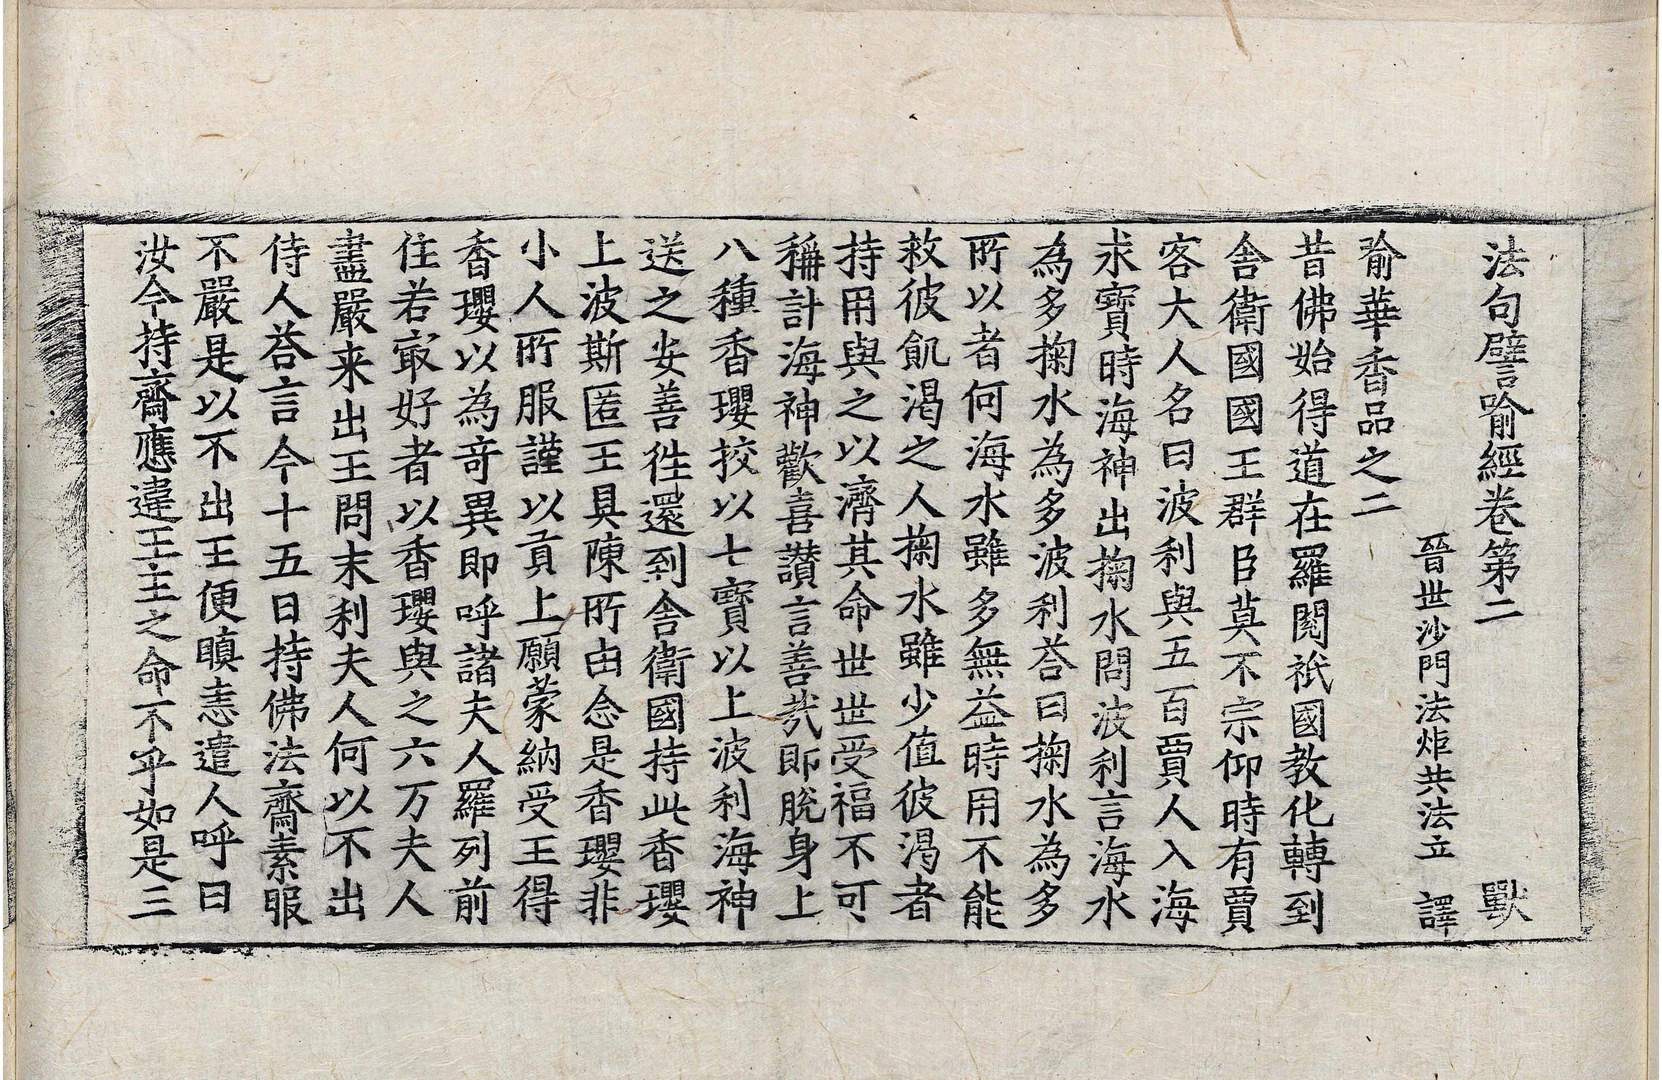 法句譬喻經卷第二 獸
晉世沙門法炬共法立 譯
喻華香品之二
昔佛始得道在羅閱祇國教化轉到
舍衛國國王群臣莫不宗仰時有賈
客大人名曰波利與五百賈人入海
求寶時海神出掬水問波利言海水
為多掬水為多波利荅曰掬水為多
所以者何海水雖多無益時用不能
救彼飢渴之人掬水雖少值彼渴者
持用與之以濟其命世世受福不可
稱計海神歡喜讚言善哉即脫身上
八種香瓔挍以七寶以上波利海神
送之安善徃還到舍衛國持此香瓔
上波斯匿王具陳所由念是香瓔非
小人所服謹以貢上願蒙納受王得
香瓔以為竒異即呼諸夫人羅列前
住若冣好者以香瓔與之六万夫人
盡嚴来出王問末利夫人何以不出
侍人荅言今十五日持佛法齋素服
不嚴是以不出王便瞋恚遣人呼曰
汝今持齋應違王主之命不乎如是三